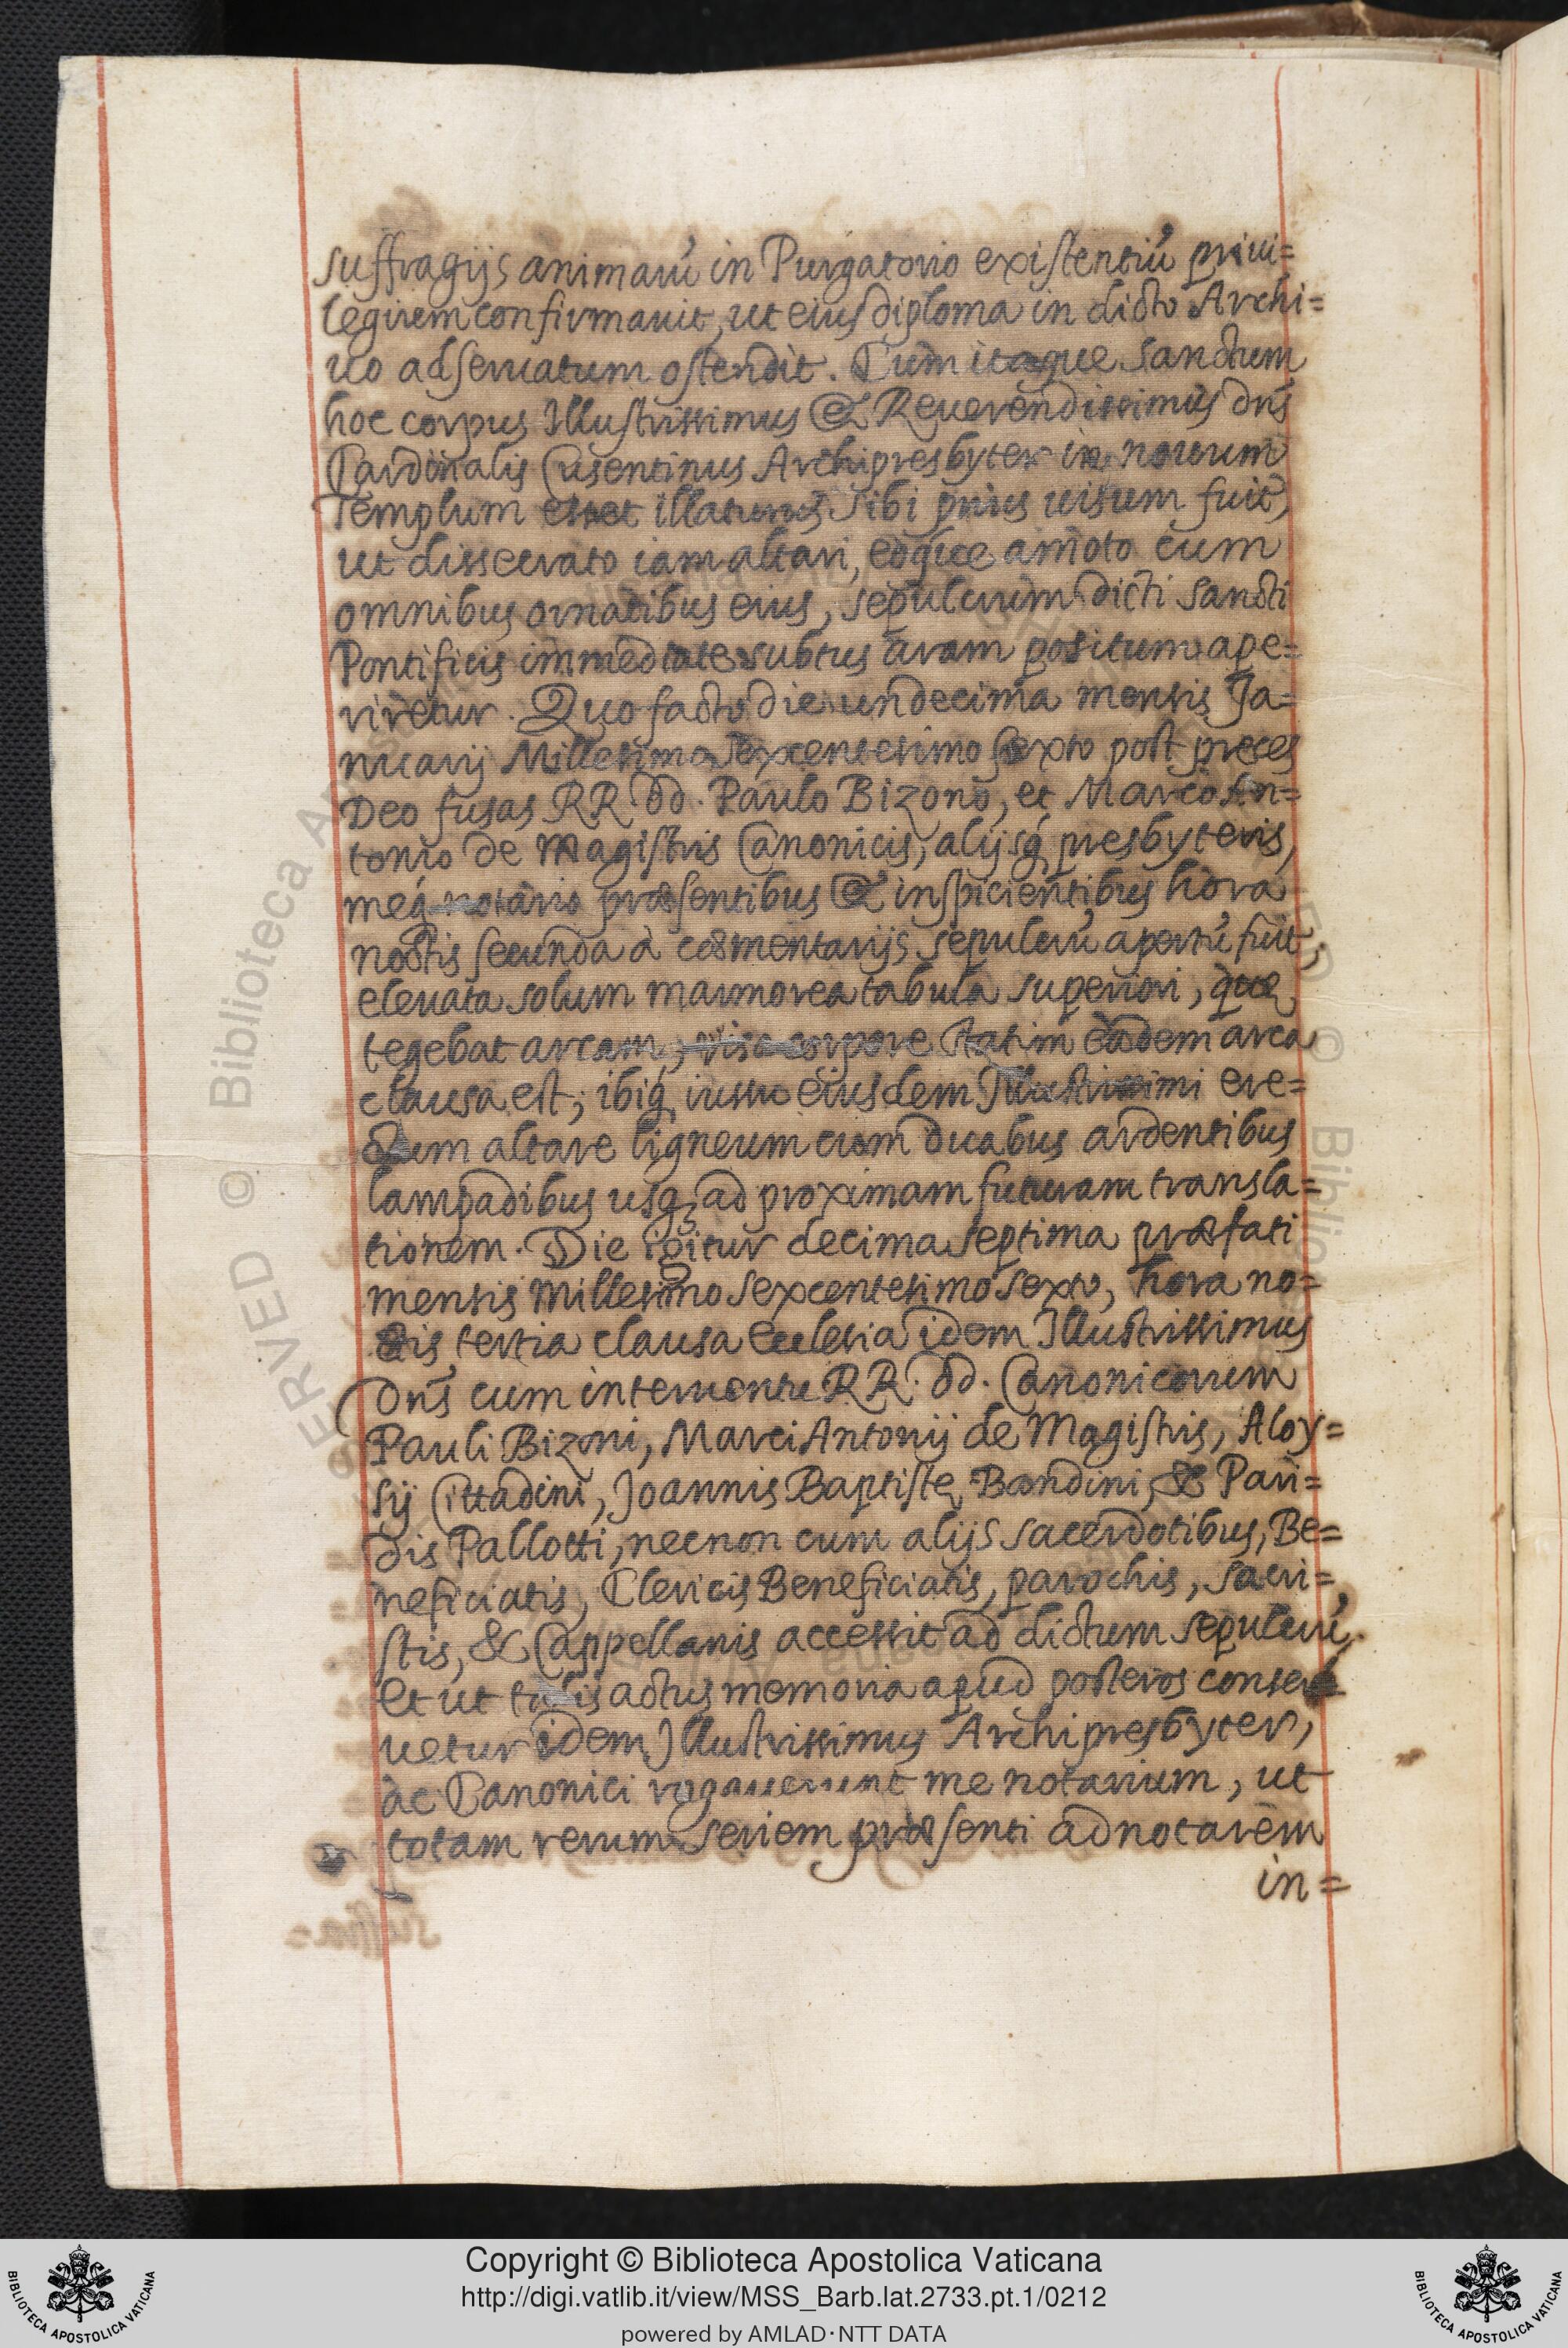 suffragijs animarũ in Purgatorio existentiũ priui=
legium confirmauit, ut eius diploma in dicto Archi=
uo adseruatum ostendit. Cum itaque sanctum
hoc corpus Illustrissimus & Reuerendissimus dñs
Cardinalis Cusentinus Archipresbyter in nouum
Templum esset illaturus sibi prius uisum fuit,
ut dissecrato iam altari, eoque amoto cum
omnibus ornatibus eius, sepulcrum dicti sancti
Pontificis immediate subtus aram positum ape=
riretur. Quo facto die undecima mensis Ja=
nuarij Millesimo Sexcentesimo sexto post preces
Deo fusas RR. dd. Paulo Bizono, et Marco An=
tonio de Magistris Canonicis, alijsq presbyteris,
meq notario præsentibus & inspicientibus hora
noctis secunda à cæmentarijs sepulcrũ apertũ fuit,
eleuata solum marmorea tabula superiori, quę
tegebat arcam, uiso corpore statim eadem arca
clausa est; ibiq iussu eiusdem Illustrissimi ere=
ctum altare ligneum cum duabus ardentibus
lampadibus usq ad proximam futuram transla=
tionem. Die igitur decima septima præfati
mensis Millesimo sexcentesimo sexto, hora no=
ctis tertia clausa ecclesia idem Illustrissimus
Dñs cum interuentu RR. dd. Canonicorum
Pauli Bizoni, Marci Antonij de Magistris, Aloy=
sij Cittadini, Joannis Baptistę Bandini, & Pari=
dis Pallotti, necnon cum alijs sacerdotibus, Be=
neficiatis, Clericis Beneficiatis, parochis, sacri=
stis, & Cappellanis accessit ad dictum sepulcrũ.
Et ut talis actus memoria apud posteros conser
uetur idem Illustrissimus Archipresbyter,
ac Canonici rogauerunt me notarium, ut
totam rerum seriem præsenti adnotarem
in=
Copyright © Biblioteca Apostolica Vaticana
http://digi.vatlib.it/view/MSS_Barb.lat.2733.pt.1/0212
powered by AMLAD·NTT DATA
BIBLIOTECA APOSTOLICA VATICANA
BIBLIOTECA APOSTOLICA VATICANA